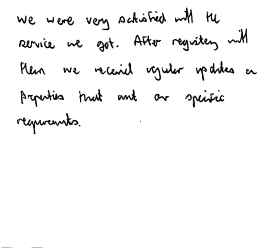 We were very satisfied with the
service we got. After registering with
them we received regular updates on
properties that met our specific
requirements.